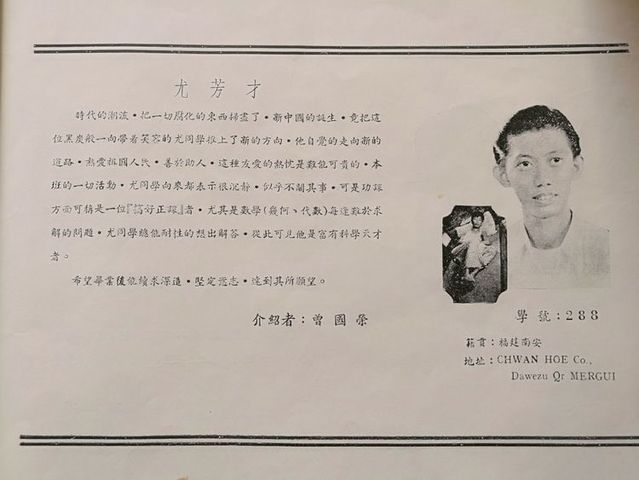 尤芳才
時代的潮流，把一切腐化的東西掃盡了，新中國的誕生，竟把這
位黑炭般一向帶着笑容的尤同學推上了新的方向，他自覺的走向新的
道路，熱愛祖國人民，善於助人，這種友愛的熱忱是難能可貴的，本
班的一切活動，尤同學向來都表示很沉靜，似乎不關其事，可是功課
方面可稱是一位『搞好正課』者，尤其是數學(幾何、代數)每逢難於求
解的問題，尤同學總能耐性的想出解答，從此可見他是富有科學天才
者。
希望畢業後能續求深造，堅定意志，達到其所願望。
介紹者：曾國榮
學號：288
籍貫：福建南安
地址：CHWAN HOE Co.,
Dawezu Qr MERGUI